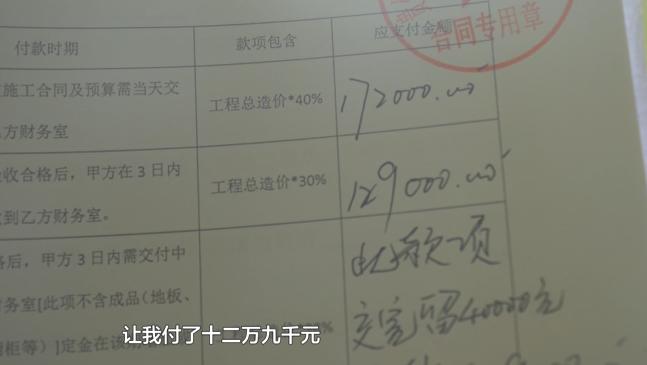 合同专用章
付款时期 款项包含 应支付金额
施工合同及预算需当天交
方财务室
工程总造价*40%
172000.00
收合格后，甲方在 3 日内
到乙方财务室。
工程总造价*30%
129000.00
后，甲方 3 日内需交付中
务室[此项不含成品（地板、
柜等）]定金在该
此款项
交完留40000元
让我付了十二万九千元